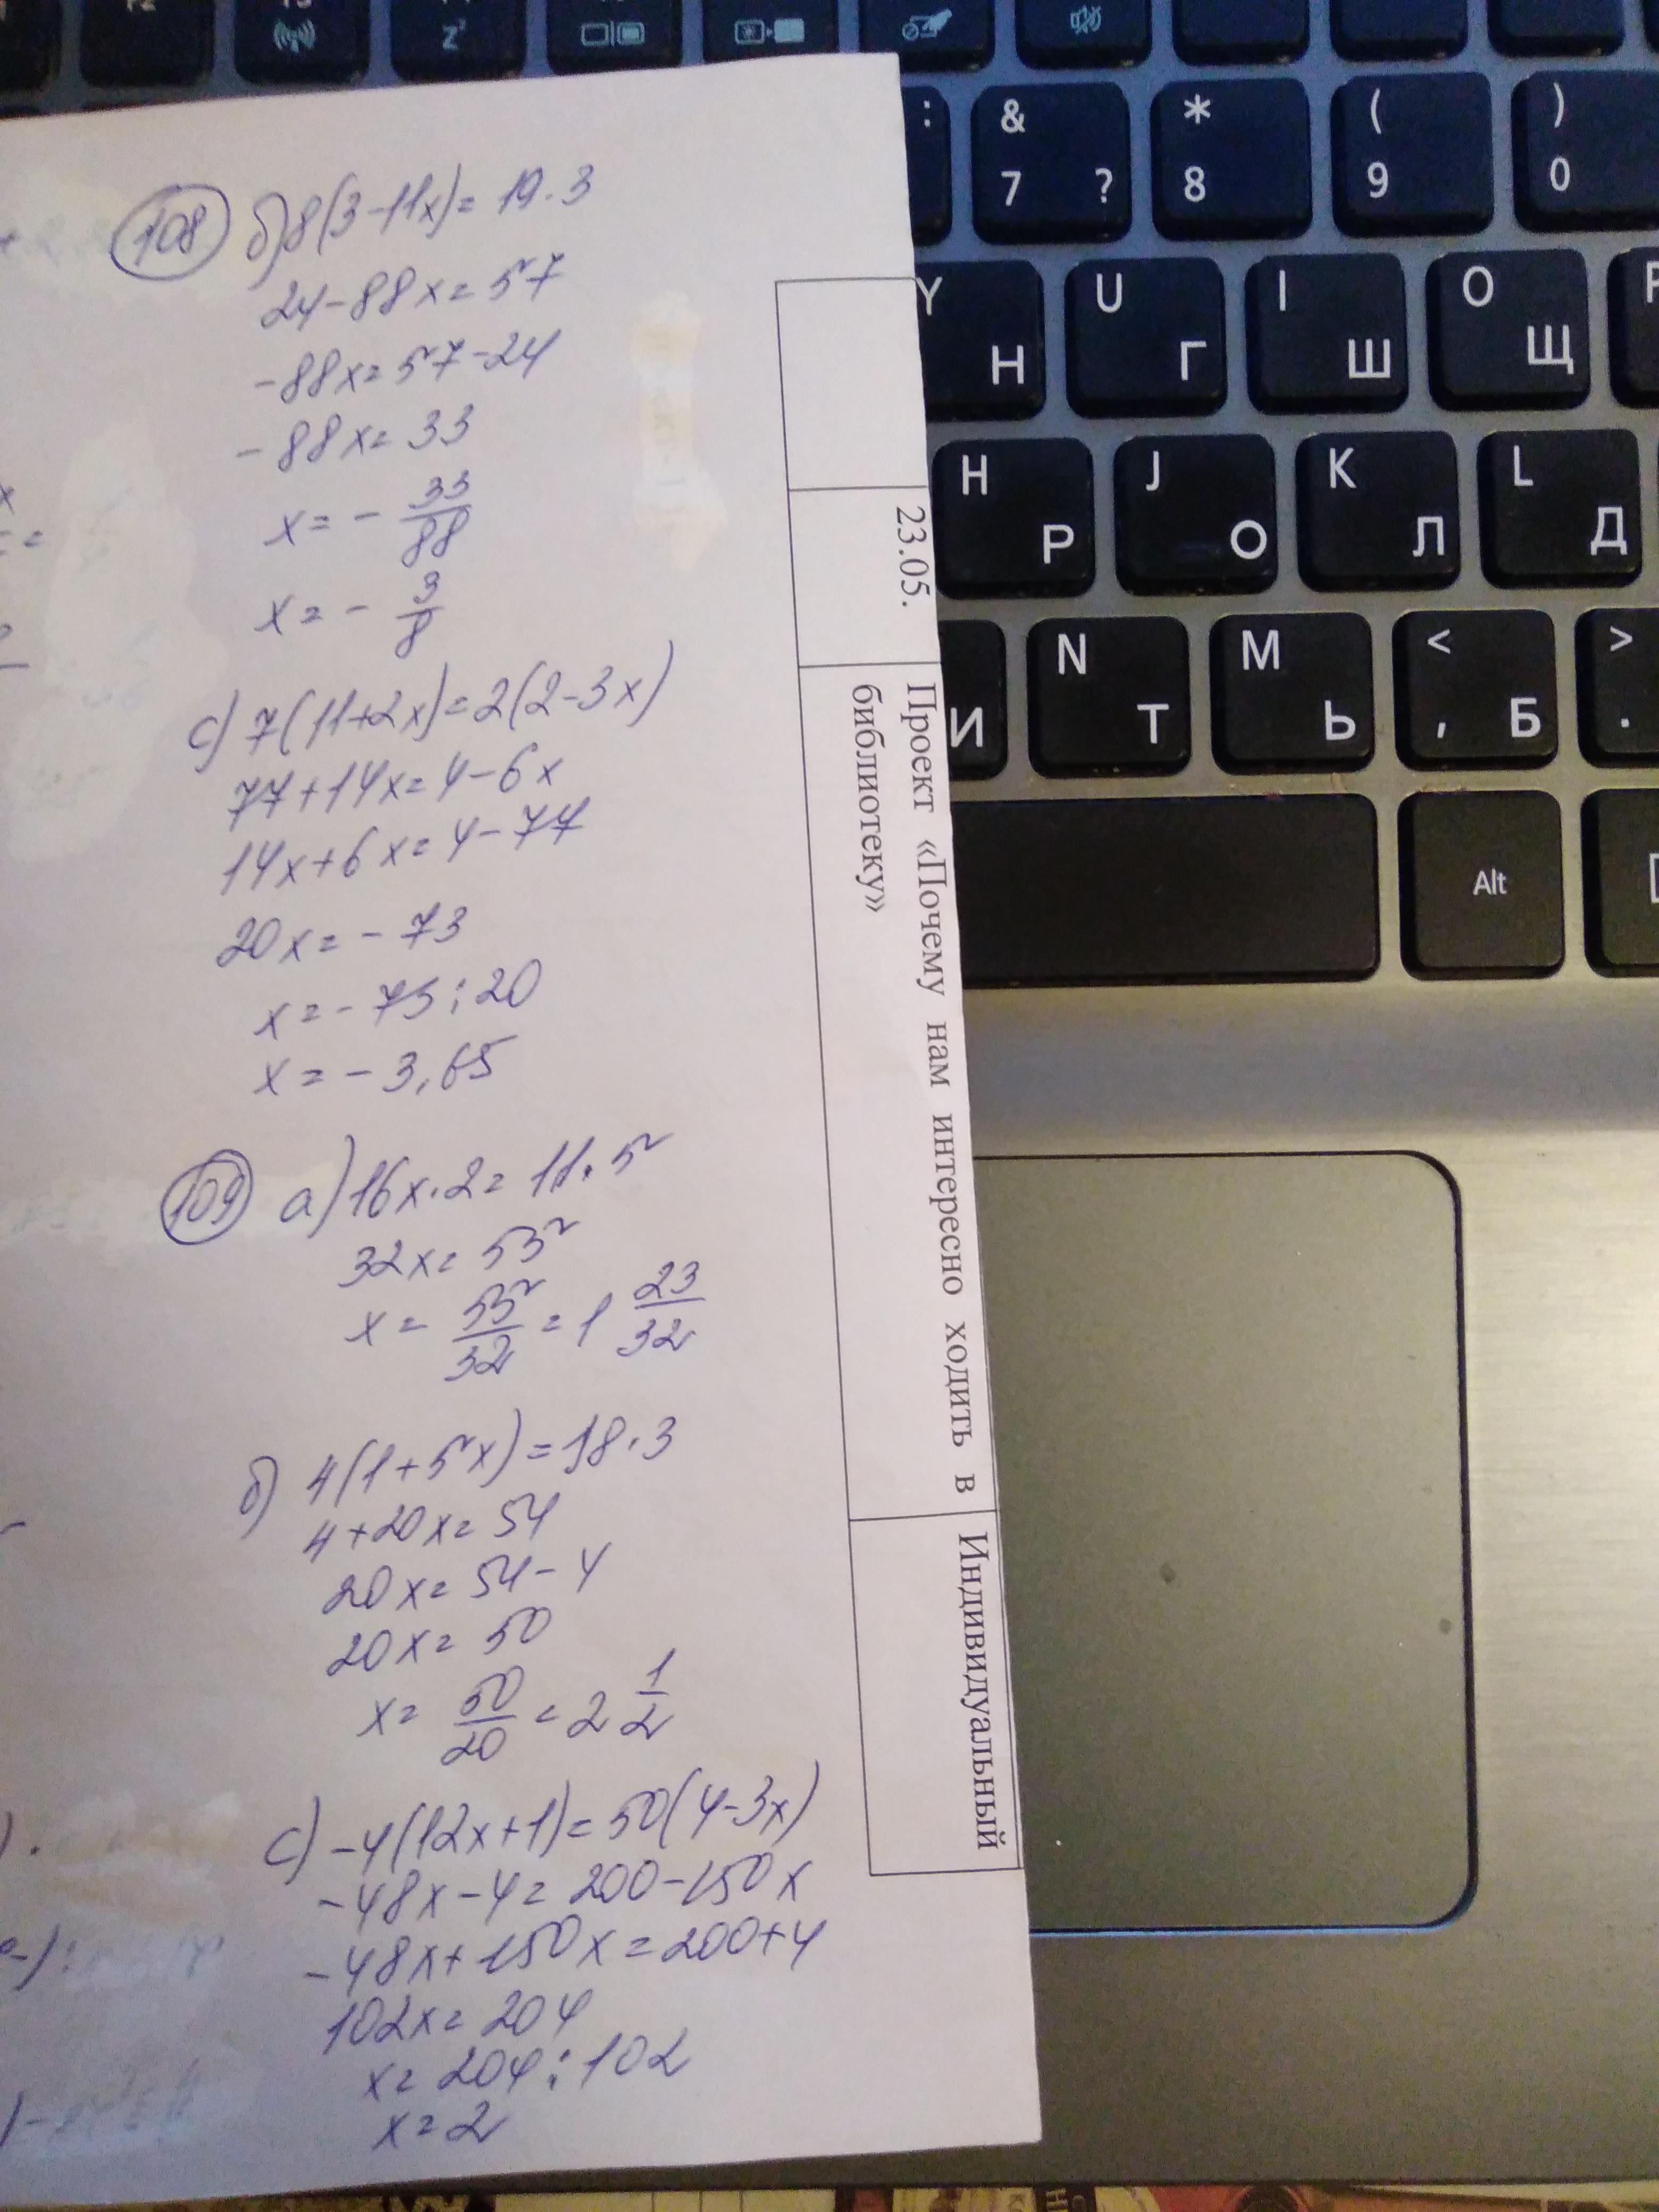 F2
Z
: & 7 ? * 8 ( 9 ) 0
Y Н U Г I Ш O Щ P
H Р J О K Л L Д
И N Т M Ь < , Б > .
Alt
108 б) 8(3-11x)= 19·3
24-88x=57
-88x=57-24
-88x=33
x= - 33/88
x= - 3/8
c) 7(11+2x)=2(2-3x)
77+14x=4-6x
14x+6x=4-77
20x=-73
x=-73:20
x=-3,65
109 a) 16x·2=11·5
32x=55
x= 55/32 = 1 23/32
б) 4(1+5x)=18·3
4+20x=54
20x=54-4
20x=50
x= 50/20 = 2 1/2
c) -4(12x+1)=50(4-3x)
-48x-4=200-150x
-48x+150x=200+4
102x=204
x=204:102
x=2
23.05.
Проект «Почему нам интересно ходить в
библиотеку»
Индивидуальный